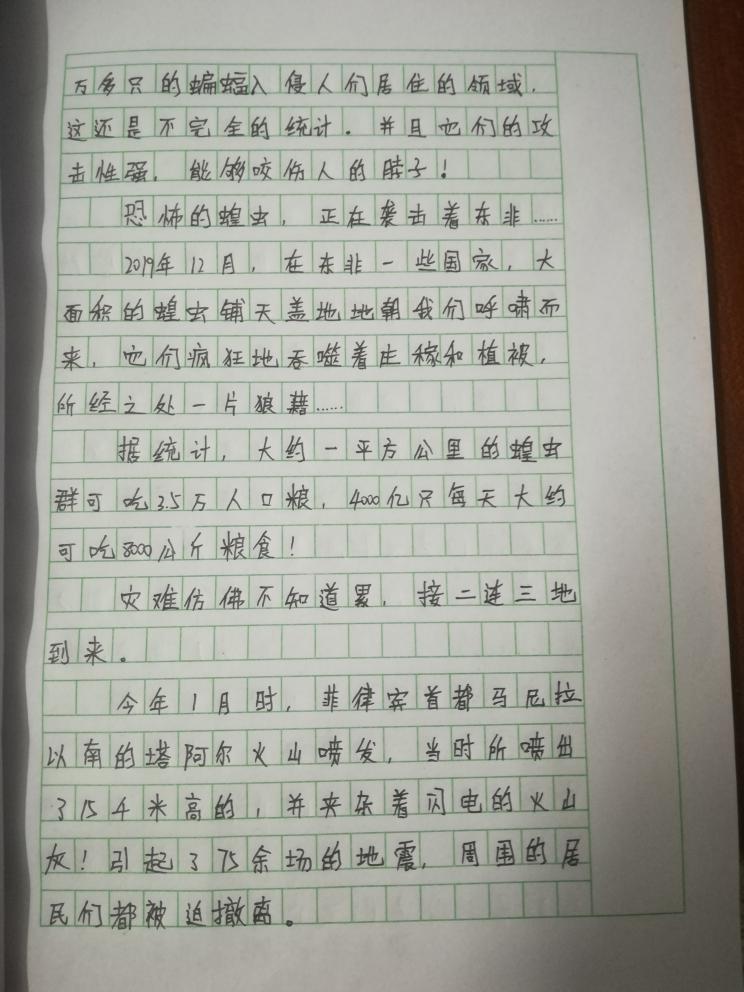 万多只的蝙蝠入侵人们居住的领域，
这还是不完全的统计．并且他们的攻
击性强，能够咬伤人的脖子！
恐怖的蝗虫，正在袭击着东非……
2019年12月，在东非一些国家，大
面积的蝗虫铺天盖地地朝我们呼啸而
来，它们疯狂地吞噬着庄稼和植被，
所经之处一片狼藉……
据统计，大约一平方公里的蝗虫
群可吃3.5万人口粮，4000亿只每天大约
可吃8000公斤粮食！
灾难仿佛不知道累，接二连三地
到来。
今年1月时，菲律宾首都马尼拉
以南的塔阿尔火山喷发，当时所喷出
了15千米高的，并夹杂着闪电的火山
灰！引起了75余场的地震，周围的居
民们都被迫撤离。